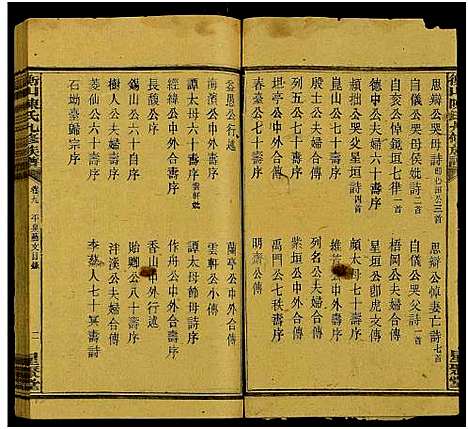 衡山陳氏九修族譜
思辯公哭母詩 三首
思辯公悼妻亡詩 九首
自儀公哭母侯妣詩 二首
自儀公哭父詩 一首
自亥公悼錫垣七律 一首
梧岡公夫婦合傳
德中公中外合傳
星垣公郎虎文傳
頑拙公哭父星垣詩 四首
頗太母六十壽序
崑山公六十壽序
公中外合壽序
殷士公夫婦合傳
列名公夫婦合傳
公中外合壽序
紫垣公中外合壽序
公七十壽序
禹門公七秩壽序
春臺公七十壽序
明齋公傳
益恩公行述
蘭亭公中外合傳
海濱公中外合壽序
雲軒公小傳
譚太母六十壽序 雲軒妣
譚太母節壽詩序
公中外合壽序
作舟公中外合壽序
長馥公序
香山公中外壽序
錫山公六十壽序
始卿公六十壽序
樹人公夫婦壽序
泮漢公夫婦合傳
菱仙公六十壽序
李藝人七十冥壽詩
石坳臺歸宗序
衡山陳氏九修族譜
卷九
平泉藝文目錄
二
星聚堂